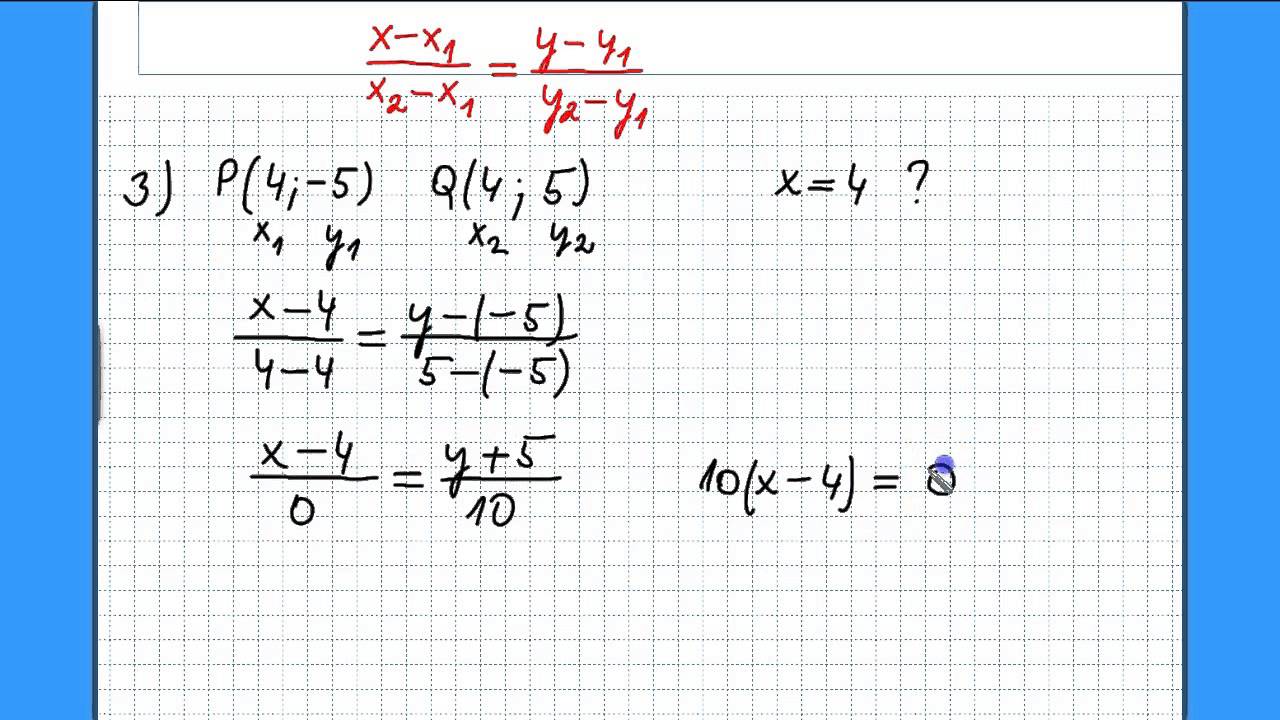 x-x₁/x₂-x₁ = y-y₁/y₂-y₁
3) P(4;-5) Q(4;5) x=4 ?
x₁ y₁ x₂ y₂
x-4/4-4 = y-(-5)/5-(-5)
x-4/0 = y+5/10 10(x-4) = 0